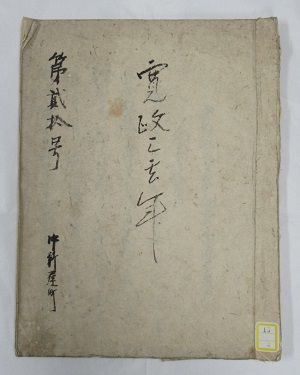 寛政三亥年
第貳拾号
中新屋町